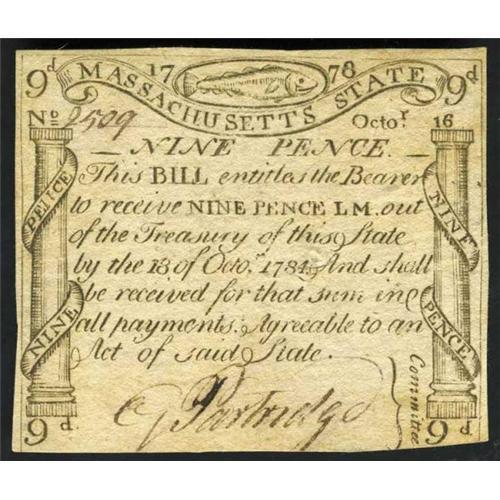 9d 17 78 9d
MASSACHUSETTS STATE
No 2509 Octor. 16
NINE PENCE
This BILL entitles the Bearer
to receive NINE PENCE L M. out
of the Treasury of this State
by the 18 of Octor. 1784. And shall
be received for that sum in
all payments. Agreeable to an
Act of said State.
PENCE
NINE
NINE
PENCE
G Partridge
Committee
9d. 9d.